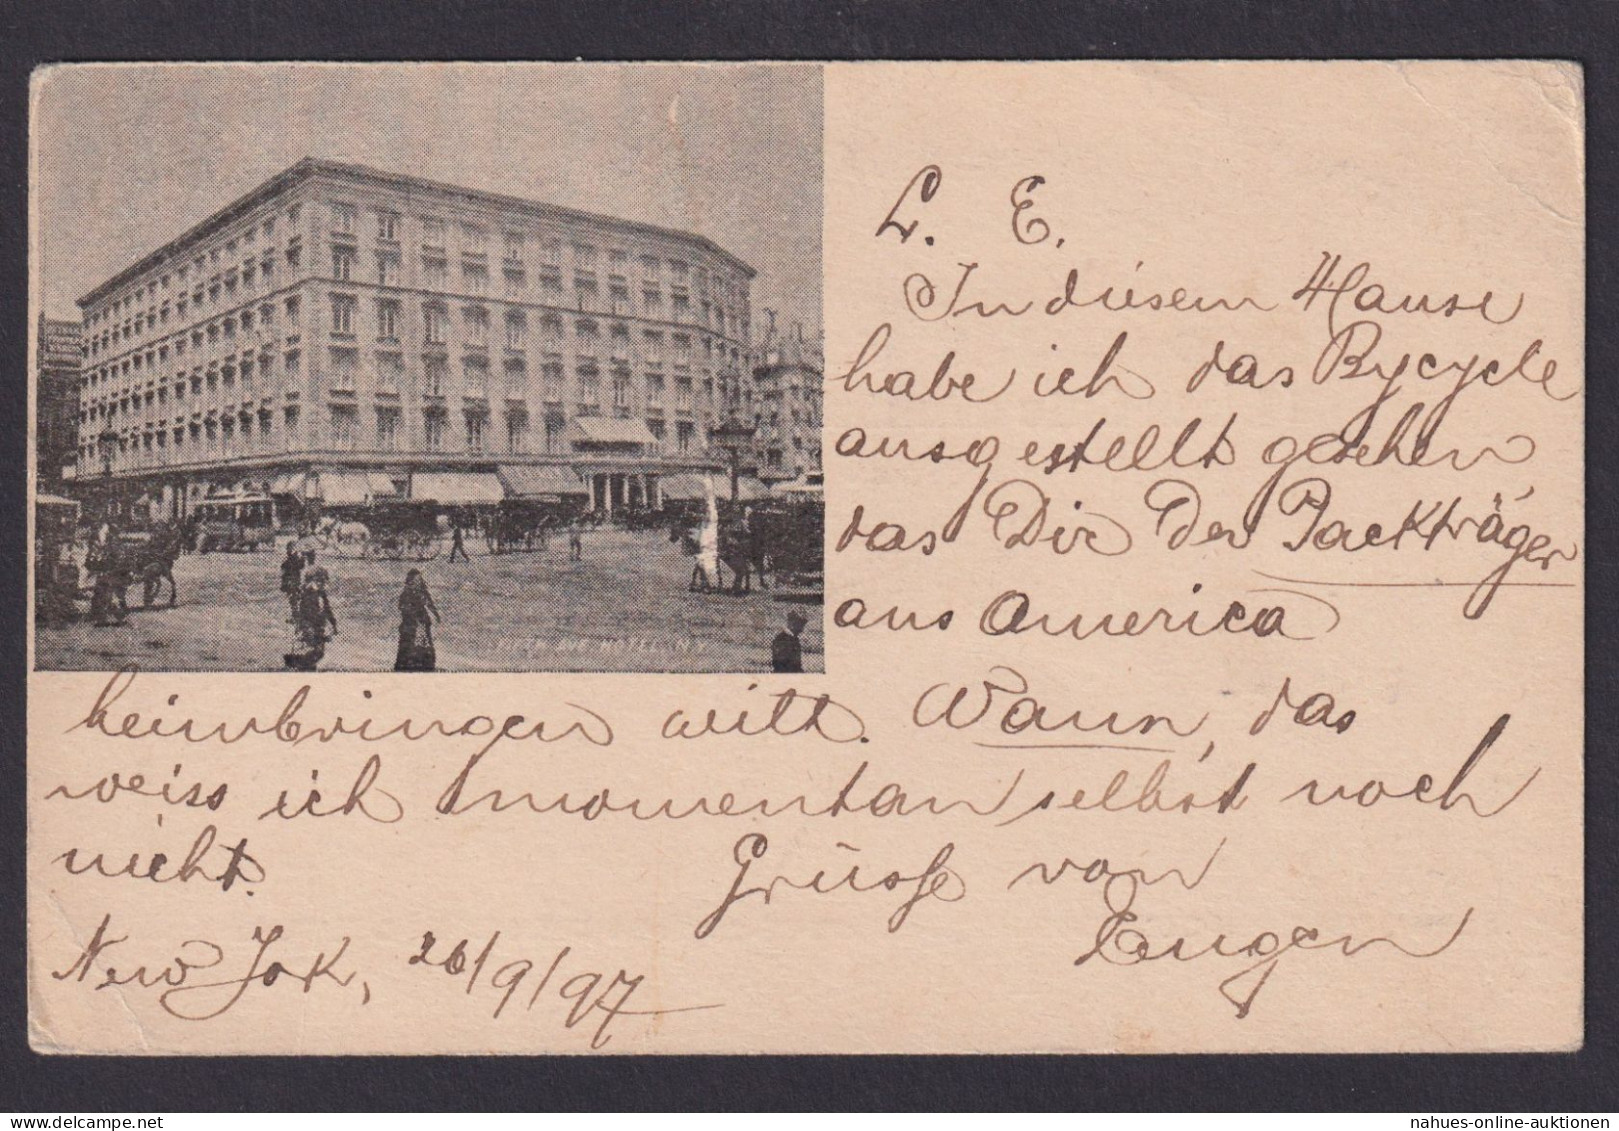 L. E.
In diesem Hause
habe ich das Bycycle
ausgestellt gesehen,
das Dir Der Packträger
aus America
heimbringen will. Wann, das
weiss ich momentan selbst noch
nicht. Grüsse von
Eugen
New York, 26/9/97
FIFTH AVE HOTEL N.Y.
nahues-online-auktionen